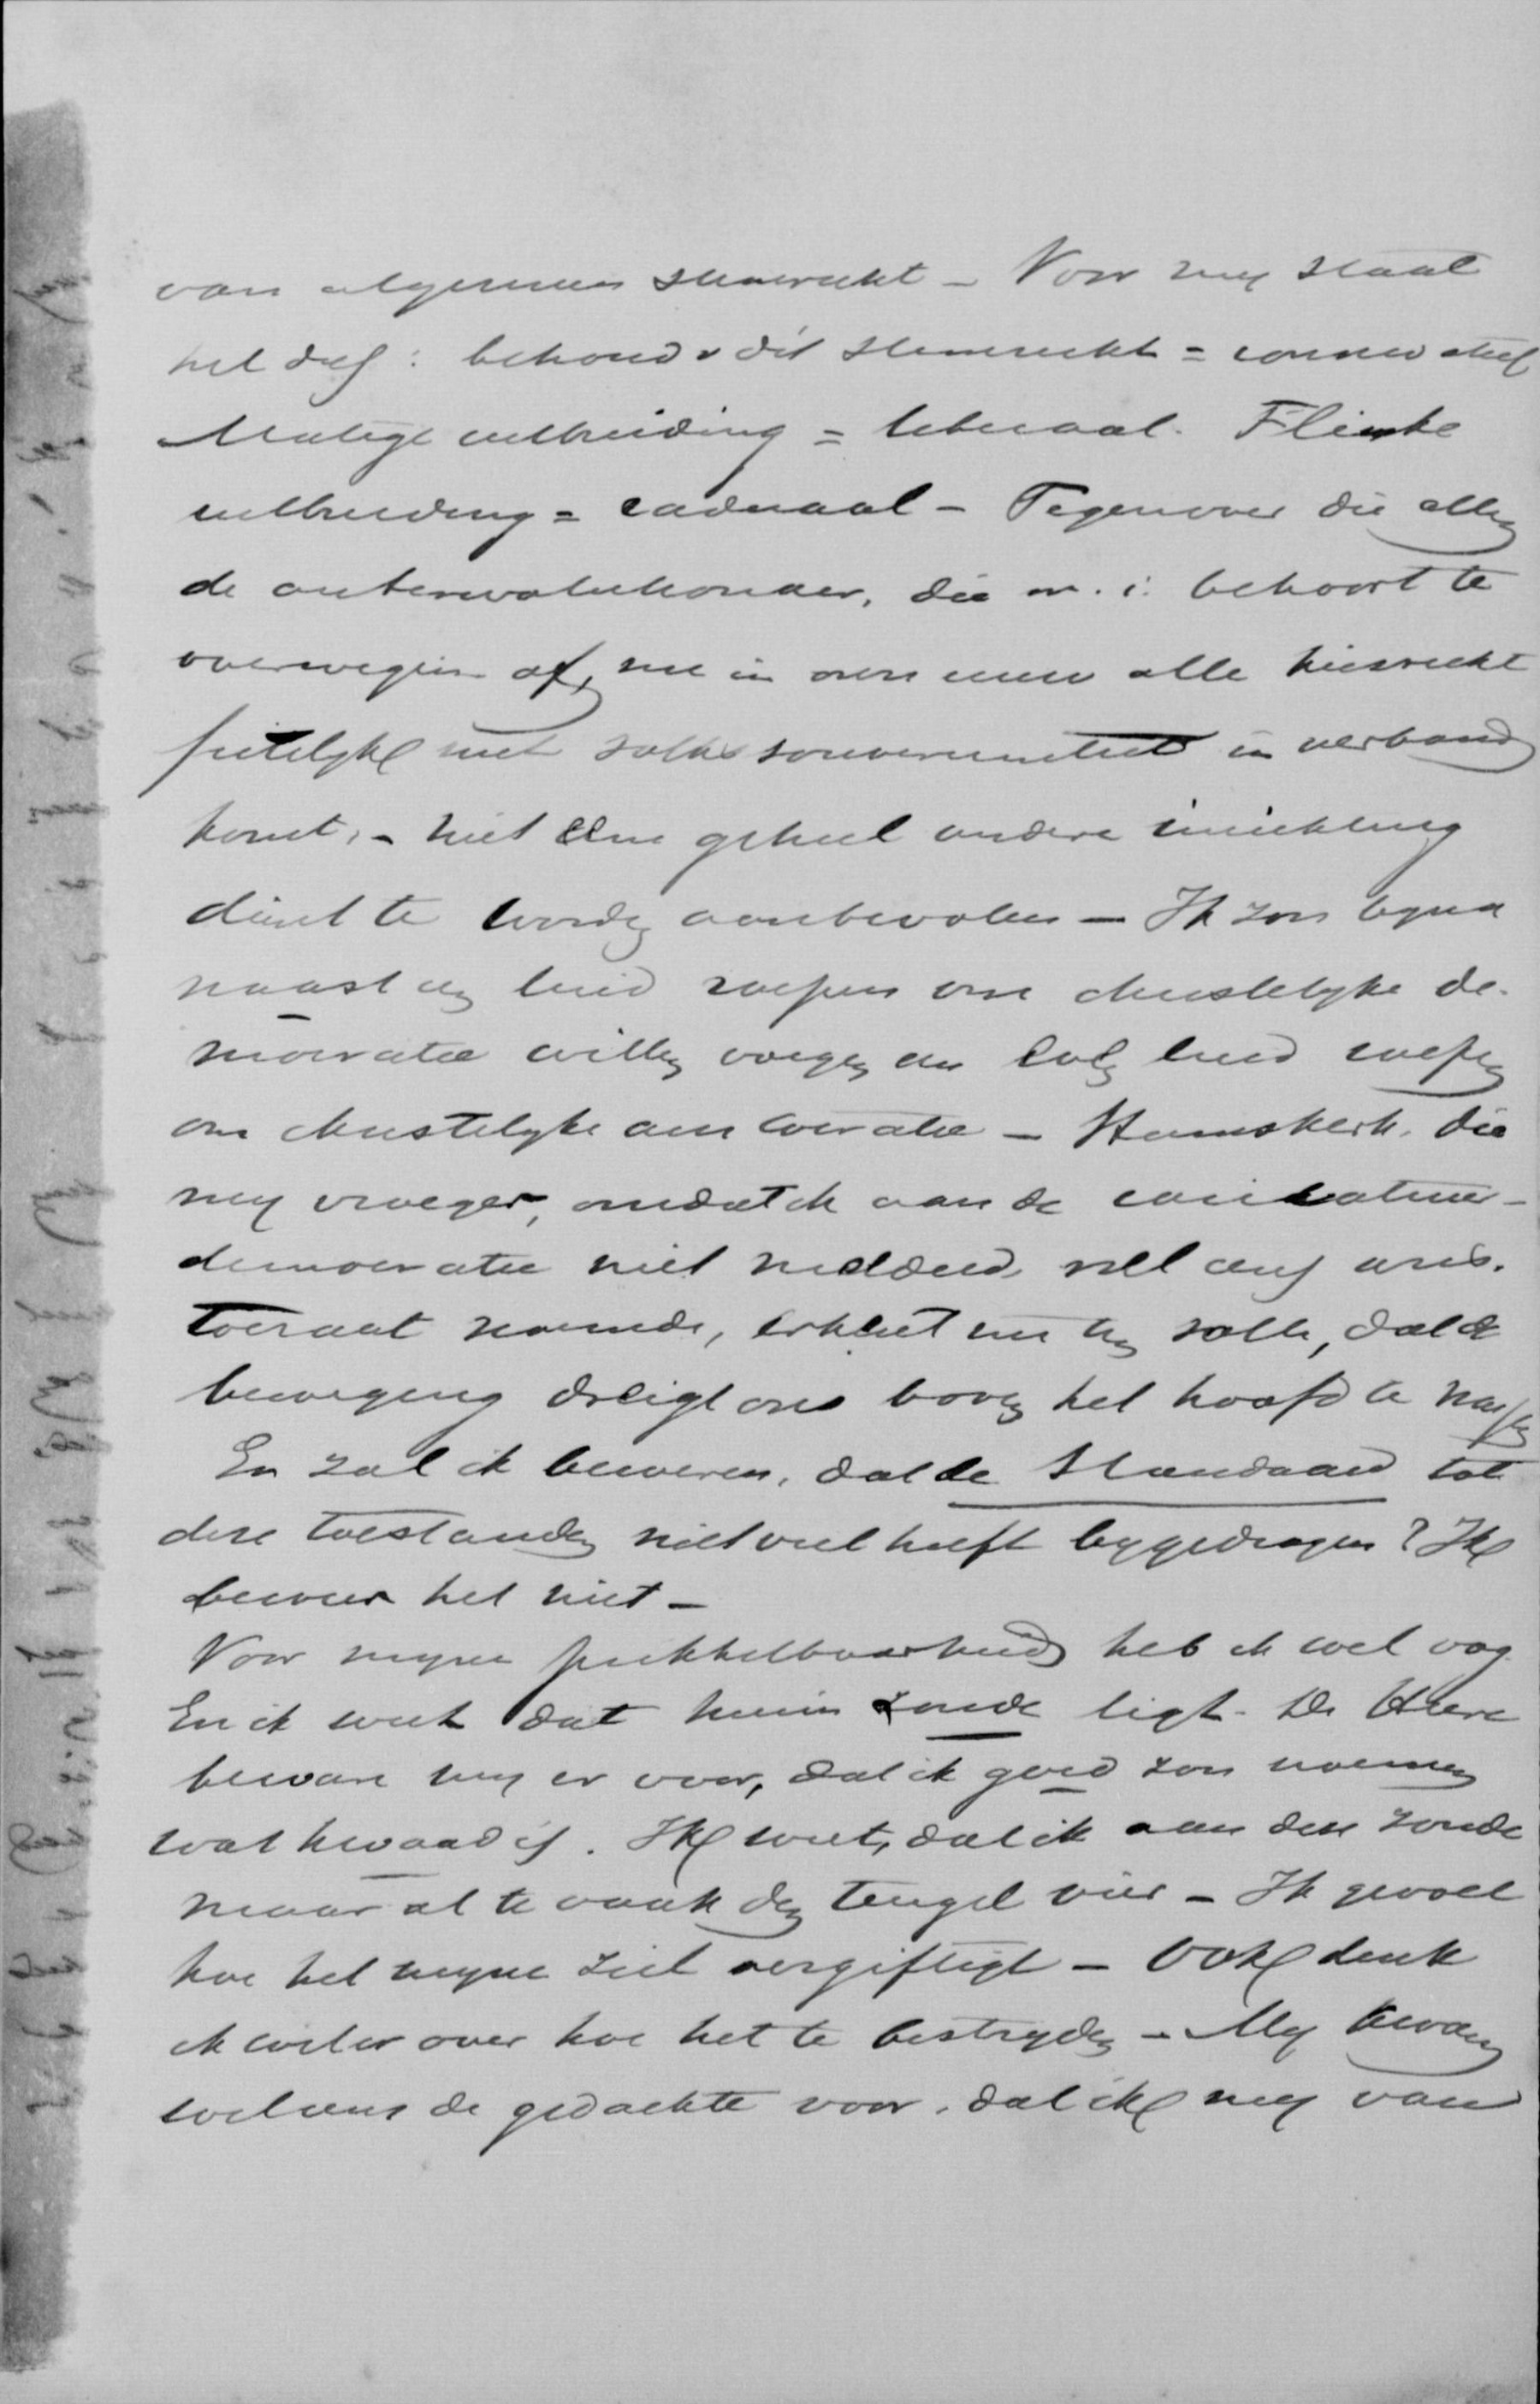 van algemeen stemrecht – Voor my staat
het dus: behoud v dit stemrecht = conservatief
Matige uitbreiding = liberaal. Flinke
uitbreiding = radicaal – Tegenover die allen
de antirevolutionair, die m. i. behoort te
overwegen of, nu in onze eeuw alle kiesrecht
feitelyk met volkssouvereiniteit in verband
komt, – niet eene geheel andere inrichting
dient te worden aanbevolen – Ik zou byna
naast een luid roepen om christelyke de-
mocratie willen voegen een luid roepen
om christelyke autocratie – Heemskerk, die
my vroeger, omdat ik aan de
democratie niet meedeed, aris-
tocraat noemde, erkent nu ten volle, dat de
beweging dreigt ons boven het hoofd te wassen
En zal ik beweren, dat de Standaard tot
deze toestanden niet veel heeft bygedragen? Ik
beweer het niet –
Voor myne prikkelbaarheid heb ik wel oog
En ik weet dat hierin zonde ligt. De Heere
beware my er voor, dat ik goed zou noemen
wat kwaad is. Ik weet, dat ik aan deze zonde
maar al te vaak den teugel vier – Ik gevoel
hoe het myne ziel vergiftigt – Ook denk
ik er over hoe het te bestryden – My kwam
wel eens de gedachte voor, dat ik my van